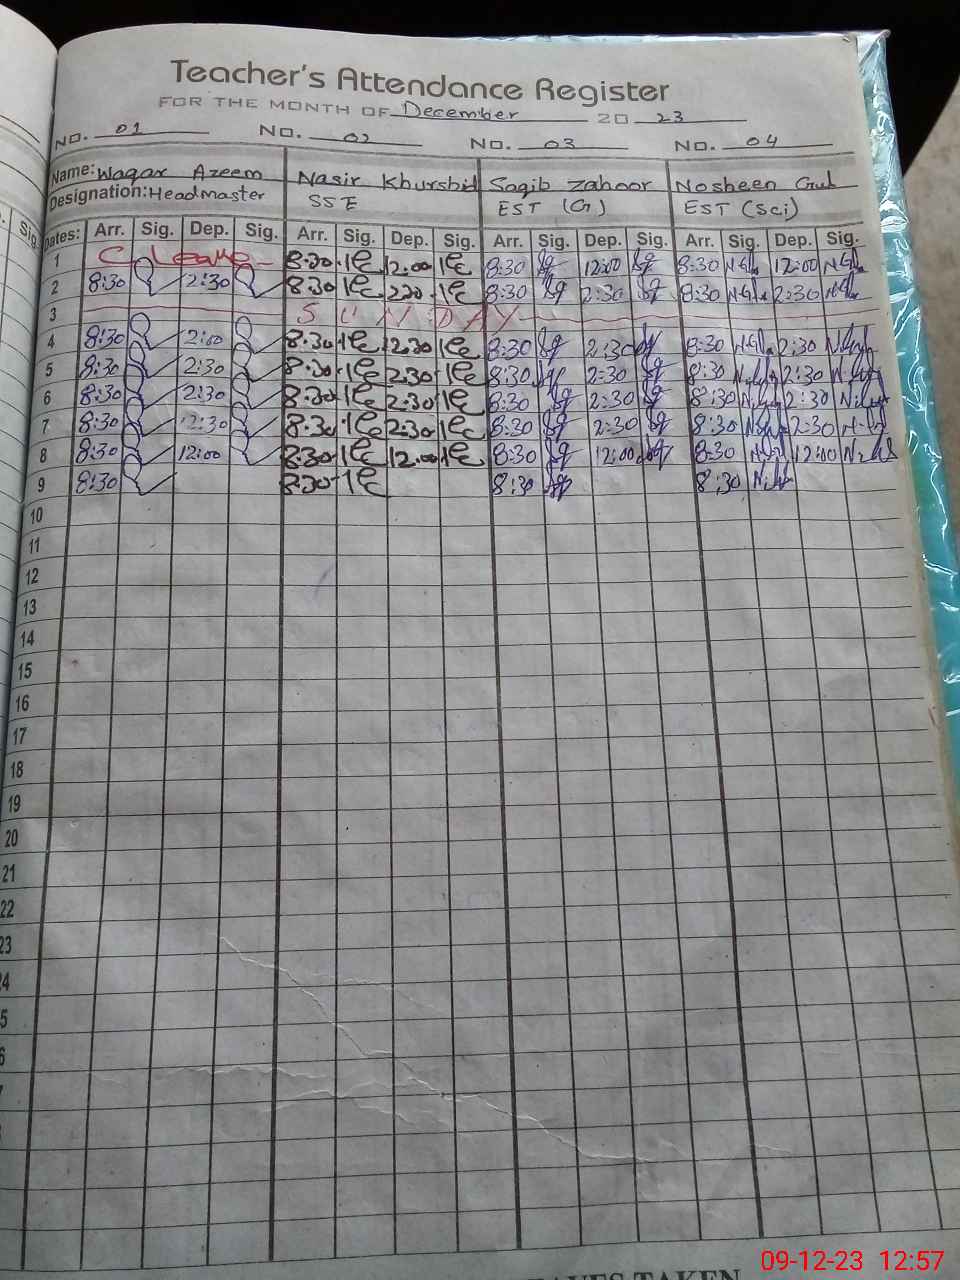 Teacher's Attendance Register
FOR THE MONTH OF December 20 23
NO. 01 NO. 02 NO. 03 NO. 04
Name: Waqar Azeem Nasir Khurshid Saqib Zahoor Nosheen Gul
Designation: Headmaster SSE EST (G) EST (Sci)
Dates: Arr. Sig. Dep. Sig. Arr. Sig. Dep. Sig. Arr. Sig. Dep. Sig. Arr. Sig. Dep. Sig.
1 C Leave 8:30 12:00 8:30 12:00 8:30 12:00
2 8:30 2:30 8:30 230 8:30 2:30 8:30 2:30
3 SUNDAY
4 8:30 2:00 8:30 2:30 8:30 2:30 8:30 2:30
5 8:30 2:30 8:30 2:30 8:30 2:30 8:30 2:30
6 8:30 2:30 8:30 2:30 8:30 2:30 8:30 2:30
7 8:30 2:30 8:30 2:30 8:30 2:30 8:30 2:30
8 8:30 12:00 8:30 12:00 8:30 12:00 8:30 12:00
9 8:30 8:30 8:30 8:30
10
11
12
13
14
15
16
17
18
19
20
21
22
23
24
TAKEN
09-12-23 12:57